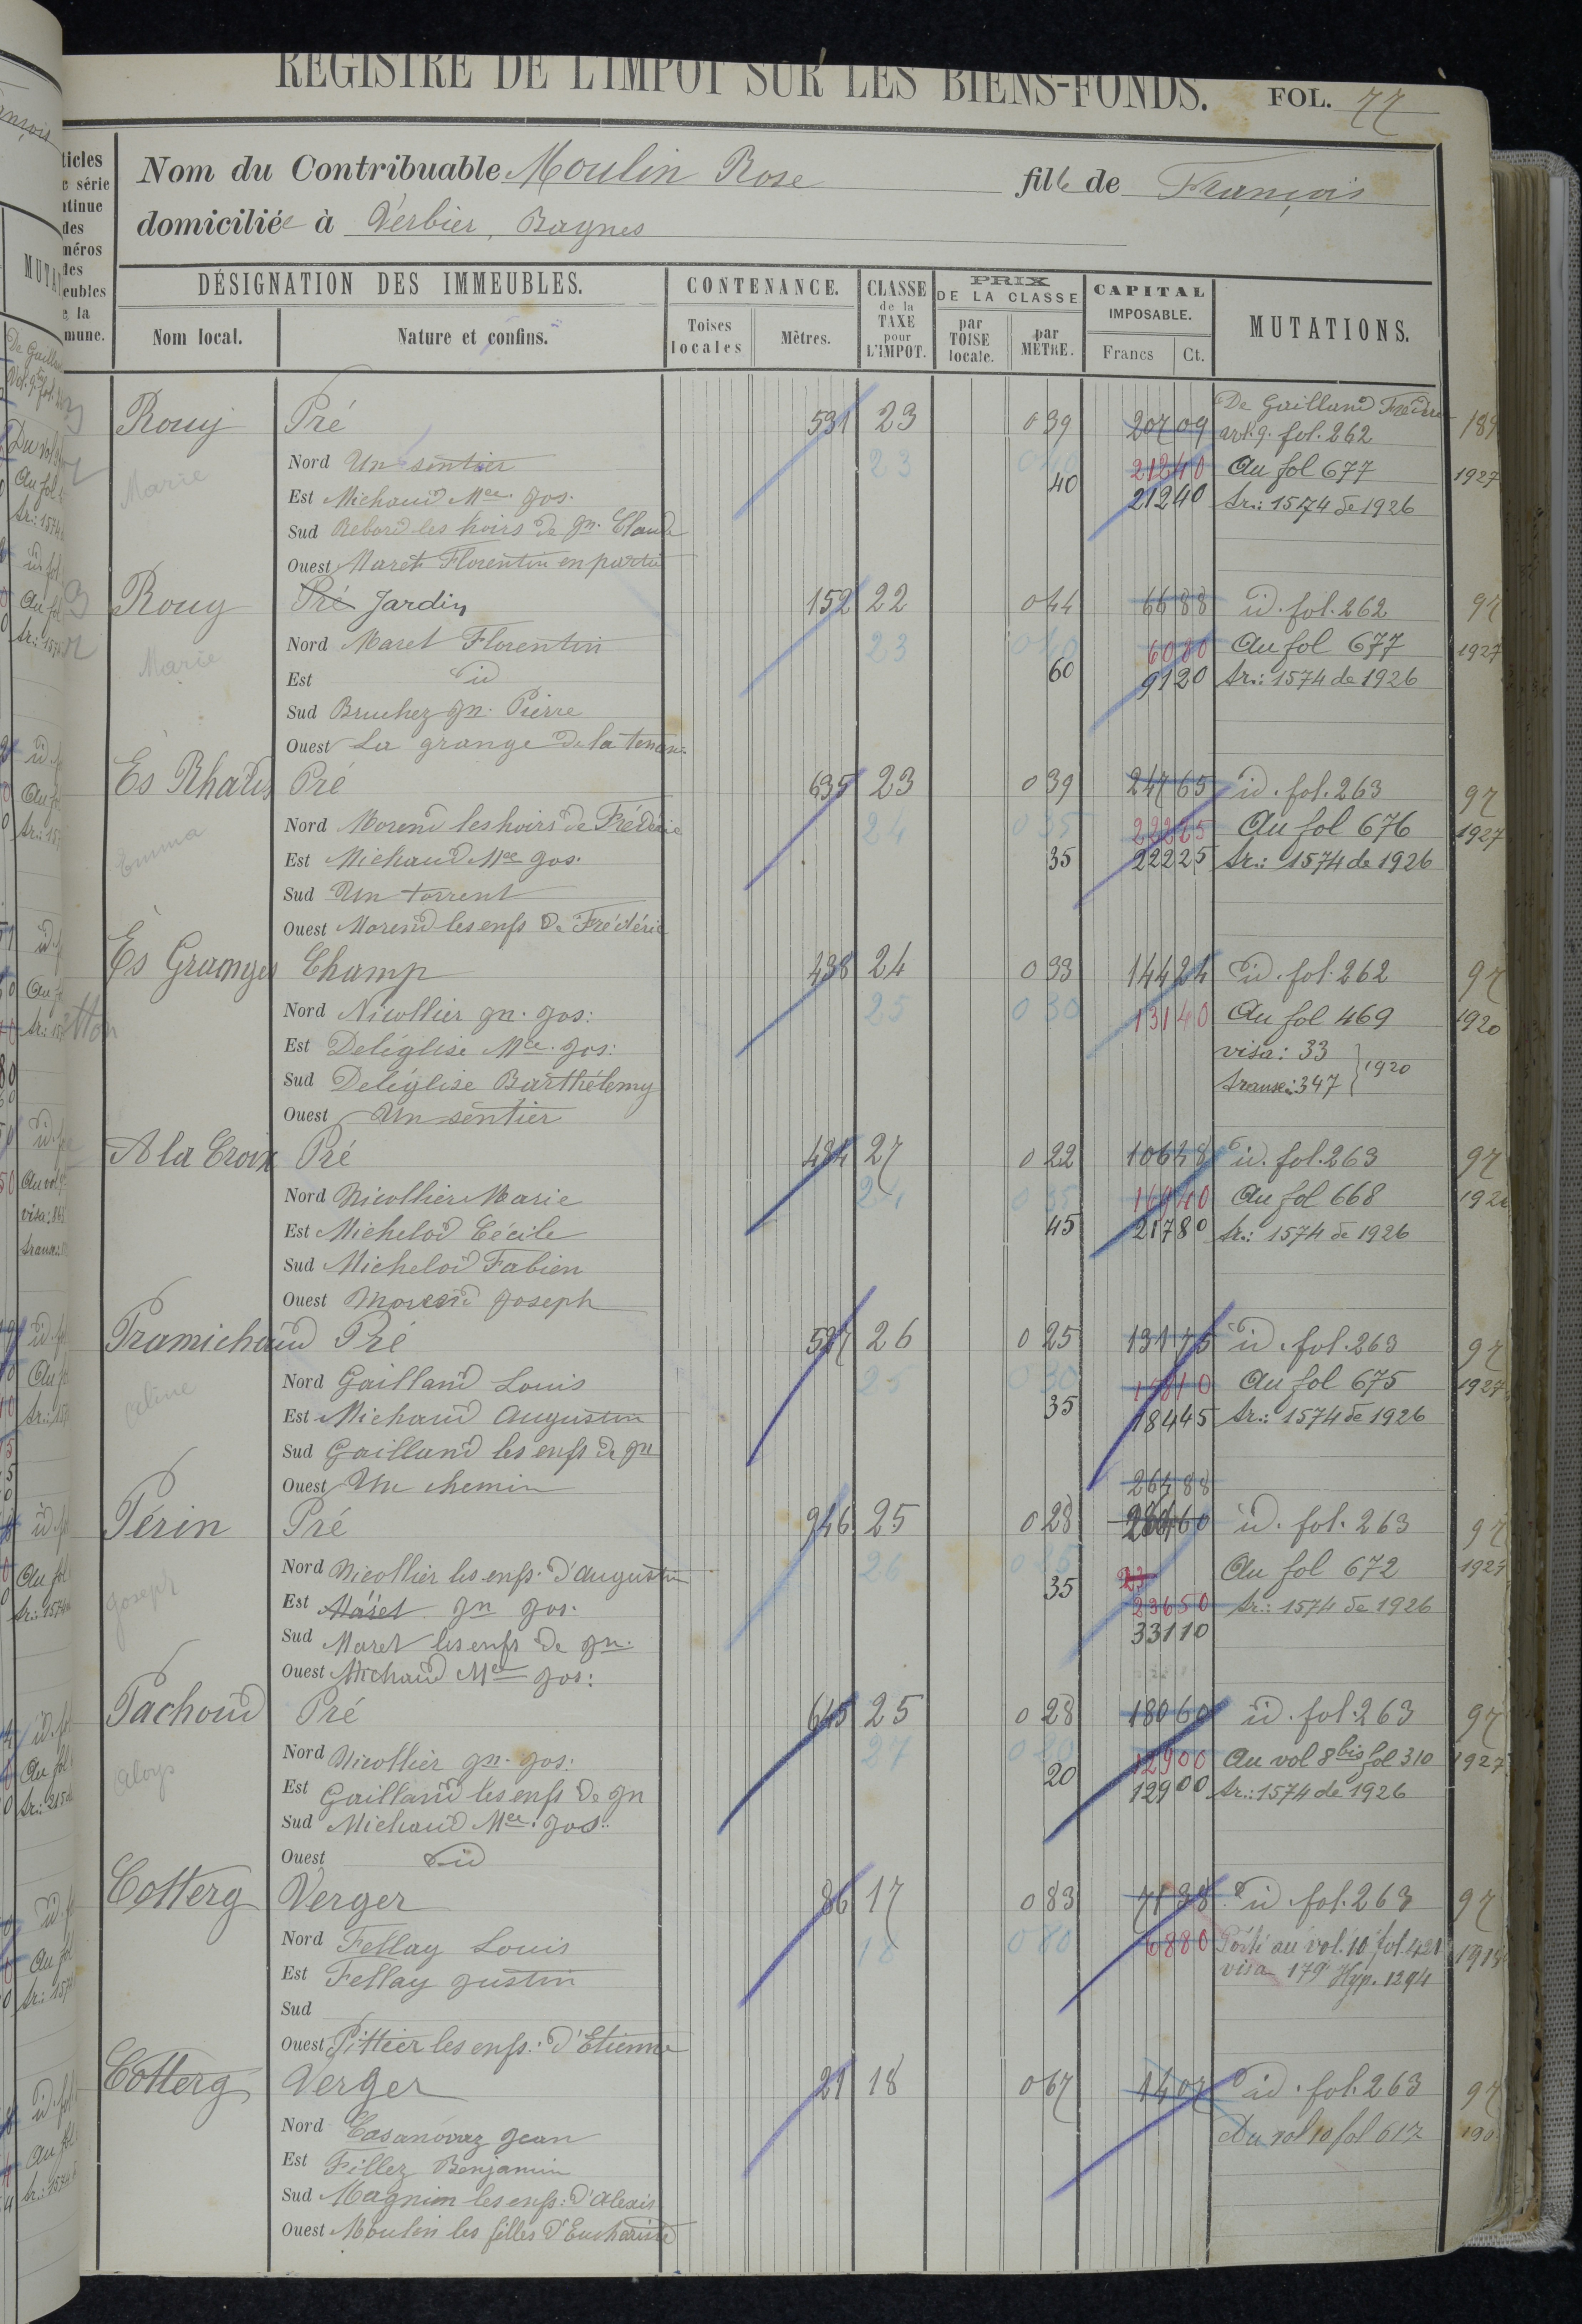 REGISTRE DE L'IMPOT SUR LES BIENS-FONDS. FOL. 77
Nom du Contribuable Moulin Rose fille de François
domiciliée à Verbier, Bagnes
DÉSIGNATION DES IMMEUBLES. CONTENANCE. CLASSE de la TAXE pour L'IMPOT. PRIX DE LA CLASSE CAPITAL IMPOSABLE. MUTATIONS.
Nom local. Nature et confins. Toises locales Mètres. par TOISE locale. par MÈTRE. Francs Ct.
Rouy Pré 531 23 0 39 207 09 De Gailland
art. 9. fol. 262
Nord Un sentier 23 0 40 212 40 Au fol 677 1927
Marie
Est Michaud Mce Jos. 40 212 40 tr.: 1574 de 1926
Sud Rebord les hoirs de gn. Claude
Ouest Maret Florentin en partie
Rouy Pré Jardin 152 22 0 44 66 88 id. fol. 262 97
Nord Maret Florentin 23 0 40 60 80 Au fol 677 1927
Marie
Est id 60 91 20 tr.: 1574 de 1926
Sud Bruchez gn. Pierre
Ouest La grange de la
Es Rhâtes Pré 635 23 0 39 247 65 id. fol. 263 97
Nord Morend les hoirs de Frédéric 24 0 35 222 25 Au fol 676 1927
Emma
Est Michaud Mce Jos. 35 222 25 tr.: 1574 de 1926
Sud Un torrent
Ouest Morend les enfs de Frédéric
Es Granges Champ 438 24 0 33 144 24 id. fol. 262 97
Nord Nicollier gn. Jos: 25 0 30 131 40 Au fol 469 1920
Est Deléglise Mce. Jos: visa: 33
Sud Deléglise Barthélemy transc: 347 1920
Ouest Un sentier
A la Croix Pré 484 27 0 22 106 48 id. fol. 263 97
Nord Nicollier Marie 24 0 35 169 40 Au fol 668 1926
Est Michelod Cécile 45 217 80 tr.: 1574 de 1926
Sud Michelod Fabien
Ouest Morend Joseph
Pramichaud Pré 527 26 0 25 131 75 id. fol. 263 97
Nord Gailland Louis 25 0 30 158 10 Au fol 675 1927
Céline
Est Michaud Augustin 35 184 45 tr.: 1574 de 1926
Sud Gailland les enfs de gn
Ouest Un chemin 264 88
Périn Pré 946 25 0 28 id. fol. 263 97
Nord Nicollier les enfs. d'Augustin 26 0 25 23 Au fol 672 1927
Joseph
Est Maret gn Jos. 35 236 50 tr.: 1574 de 1926
Sud Maret les enfs de gn. 331 10
Ouest Michaud Mce Jos:
Pachoud Pré 645 25 0 28 180 60 id. fol. 263 97
Nord Nicollier gn. Jos: 27 0 20 129 00 Au vol 8bis fol 310 1927
Aloys
Est Gailland les enfs de gn 20 129 00 tr.: 1574 de 1926
Sud Michaud Mce. Jos:
Ouest id
Cotterg Verger 86 17 0 83 71 38 id. fol. 263 97
Nord Fellay Louis 18 0 80 68 80 Porté au vol. 10 fol. 421
Est Fellay Justin visa 179 Hyp. 1294
Sud
Ouest Pittier les enfs: d'Etienne
Cotterg Verger 21 18 0 67 14 07 id. fol. 263 97
Nord Casanovaz Jean Du vol 10 fol 617
Est Fillez Benjamin
Sud Magnin les enfs: d'Alexis
Ouest Moulin les filles d'Euchariste